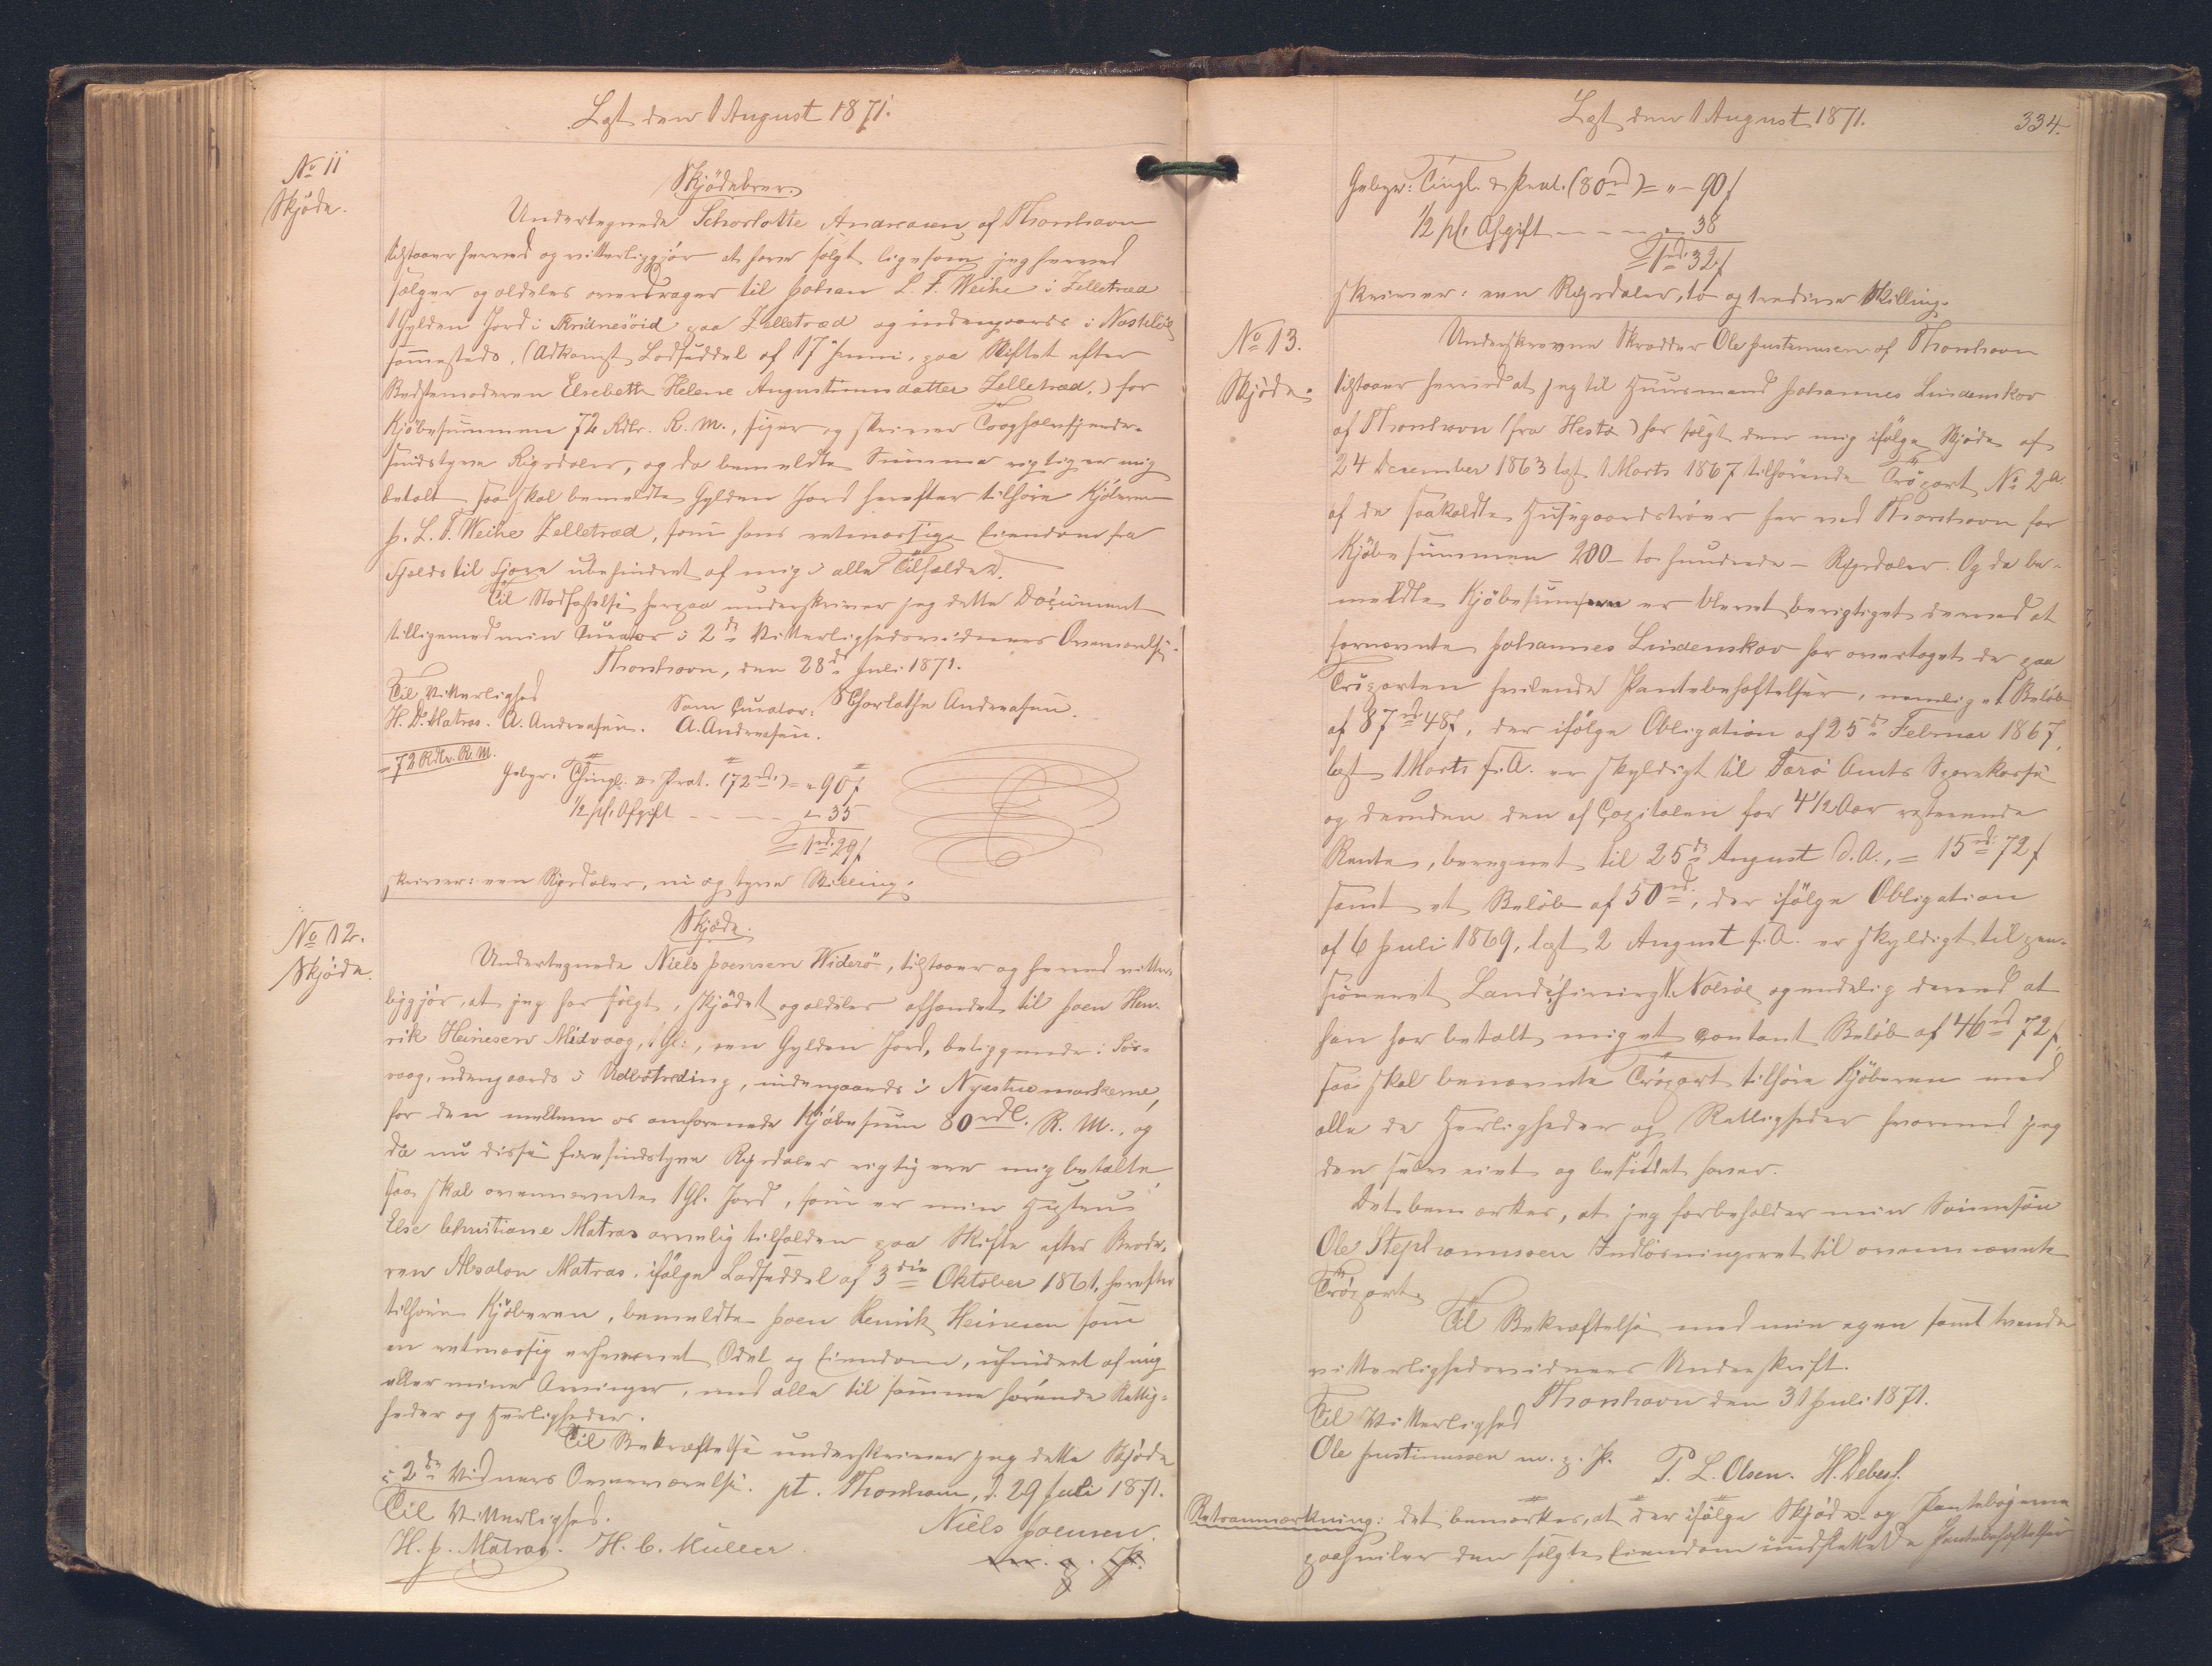 Læst den 1 August 1871.
No 11
Skjøde.
Skjödebrev.
Undertegnede Schorlotte Andreasen, af Thorshavn
tilstaaer herved og vitterliggjör at have solgt ligesom jeg herved
sælger og aldeles overdrager til Johan L. F. Weihe i Selletræd
1 Gylden Jord i paa Selletræd og indengaards i
sammesteds. (Adkomst Lodseddel af 17 Juni, paa Skiftet efter
Bedstemoderen Elsebeth Helene Augustinusdatter Selletræd.) for
Kjöbesummen 72 Rdlr. R. M., siger og skriver Tooghalvfjerde-
sindstyve Rigsdaler, og da bemeldte Summa rigtig er mig
betalt saa skal bemeldte Gylden Jord herefter tilhöre Kjöberen
J. L. F. Weihe Selletræd, som hans retmæssige Eiendom fra
Fjelds til Fjære ubehindret af mig i alle Tilfælde.
Til Stadfæstelse herpaa underskriver jeg dette Document
tilligemed min Curator i 2de Vitterlighedsvidners Overværelse.
Thorshavn, den 28de Juli 1871.
Til Vitterlighed
Som Curator: SChorlothe Andreasen.
H. D. Matras. A. Andreasen. A. Andreasen.
= 72 Rdlr. R. M.
Gebyr: Thingl. & Prot. (72rd.) = " 90 s
1/2 pCt. Afgift - - - - " 35
= 1rd. 29 s
skriver: een Rigsdaler, ni og tyve Skilling.
No 12.
Skjøde.
Skjøde.
Undertegnede Niels Joensen Widerö, tilstaaer og herved vitter-
liggjör, at jeg har solgt, skjödet og aldeles afhændet til Joen Hen-
rik Heinesen Midvaag, 1 Gl:, een Gylden Jord, beliggende i Sör-
vaag, udengaards i Udbötreding, indengaards i Nyastuemarkerne,
for den mellem os omforenede Kjöbesum 80 rdl. R. M., og
da nu disse firesindstyve Rigsdaler rigtig ere mig betalte,
saa skal ovennævnte 1 Gl. Jord, som er min Hustru
Else Christiane Matras arvelig tilfalden paa Skifte efter Brode-
ren Absalon Matras, ifölge Lodseddel af 3die Oktober 1861, herefter
tilhöre Kjöberen, bemeldte Joen Henrik Heinesen som
en retmæssig erhvervet Odel og Eiendom, uhindret af mig
eller mine Arvinger, med alle til samme hörende Rettig-
heder og Herligheder.
Til Bekræftelse underskriver jeg dette Skjöde
i 2de Vidners Overværelse. pt. Thorshavn, d. 29 Juli 1871.
Til Vitterlighed.
Niels Joensen.
H. J. Matras. H. C. Müller.
m. g. P.
Læst den 1 August 1871.
334.
Gebyr: Tingl. & Prot. (80rd) = " - 90 s
1/2 pCt. Afgift - - - - " 38
= 1rd. 32 s
skriver: een Rigsdaler, to og tredive Skilling.
No 13.
Skjøde.
Underskrevne Skrædder Ole Justinussen af Thorshavn
tilstaaer herved at jeg til Huusmand Johannes Lindenskov
af Thorshavn (fra Hestø) har solgt den mig ifölge Skjöde af
24 December 1863 læst 1 Marts 1867 tilhörende Tröpart No 2a
af de saakaldte Husegaardströer her ved Thorshavn for
Kjöbesummen 200 - to hundrede - Rigsdaler. Og da be-
meldte Kjöbesum er blevet berigtiget derved at
fornævnte Johannes Lindenskov har overtaget de paa
Tröparten hvilende Pantebehæftelser, nemlig et Belöb
af 87rd 48 s, der ifölge Obligation af 25de Februar 1867,
læst 1 Marts s. A. er skyldigt til Færö Amts Sparekasse
og desuden den af Capitalen for 4 1/2 Aar resterende
Rente, beregnet til 25de August d. A., = 15rd 72 s
samt et Belöb af 50rd., der ifölge Obligation
af 6 Juli 1869, læst 2 August s. A. er skyldigt til pen-
sioneret Landchirurg N. Nolsöe og endelig derved at
han har betalt mig et contant Belöb af 46rd 72 s,
saa skal benævnte Tröpart tilhöre Kjöberen med
alle de Herligheder og Rettigheder hvormed jeg
den selv eiet og besiddet haver.
Det bemærkes, at jeg forbeholder min Sönnesön
Ole Stephanussen Indlösningsret til ovennævnte
Tröpart.
Til Bekræftelse med min egen samt tvende
vitterlighedsvidners Underskrift.
Thorshavn den 31 Juli 1871.
Til Vitterlighed
Ole Justinussen m. g. P. P. L. Olsen. H. Debes.
Retsanmærkning: det bemærkes, at der ifölge Skjöde- og Pantebøgerne
paahviler den solgte Eiendom Pantebehæftelser